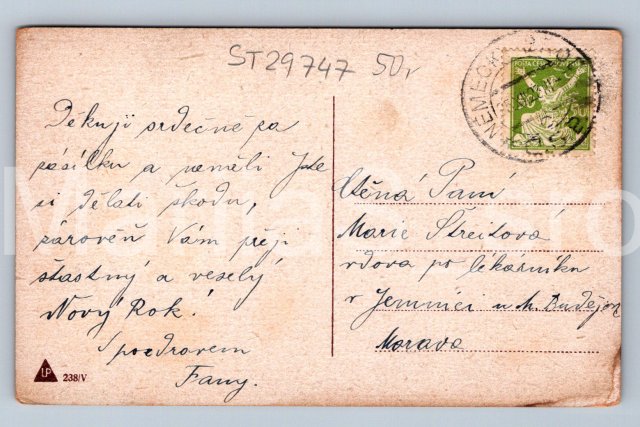 ST29747 50,-
POSTA ČESKOSLOVENSKÁ
NĚMECKÝ
Děkuji srdečně za
zásilku a neměli jste
si dělati škodu,
zároveň Vám přeji
šťastný a veselý
Nový Rok!
S pozdravem
Fany.
Ctěná Paní
Marie Streitová
vdova po lékárníku
v Jemnici u M. Budějov
Morava
LP
238/V